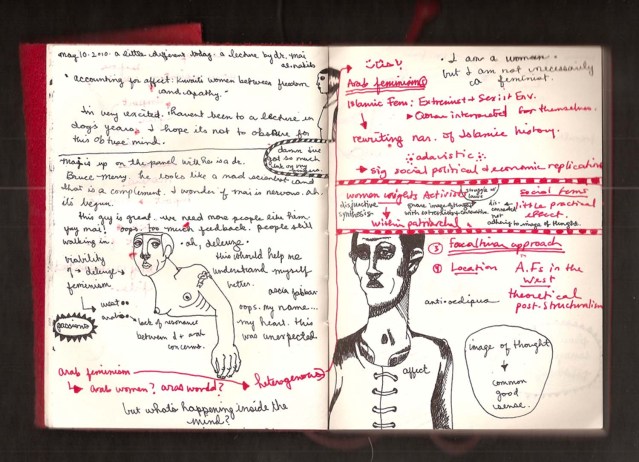 may.10.2010. a little different today. a lecture by dr. mai
al-nakib
"accounting for affect: kuwaiti women between freedom
and apathy."
I'm very excited. i havent been to a lecture in
days years. I hope its not to obscure for
this obtuse mind.
damn i've
got so much
ink on my
mai is up on the panel with
Bruce-Merry. he looks like a mad scientist and
that is a complement. I wonder if mai is nervous. ah.
its begun.
this guy is great. we need more people like him
yay mai! oops. too much feedback. people still
walking in.
oh, deleuze.
this should help me
understand myself
better.
visibility
of → deleuze
feminism
west
arab
lack of resonance
between d + arab
concerns.
oops. my name...
my heart. this
was unexpected
arab feminism
arab women? arab world?
heterogenous
but what's happening inside the
mind?
Arab feminism
• I am a woman.
but I am not necessarily
a feminist.
Islamic Fem: Extremist + Sexist Env.
rewriting nar. of Islamic history.
adavistic
sig social political + economic replication
women rights Activists
disjunctive
synthesis
within patriarchal
Social forms
little practical
effect.
③ Foucaltian approach
④ Location
A.Fs in the
West
theoretical
post-structuralism
anti-oedipus
affect
image of thought
common
good
sense.